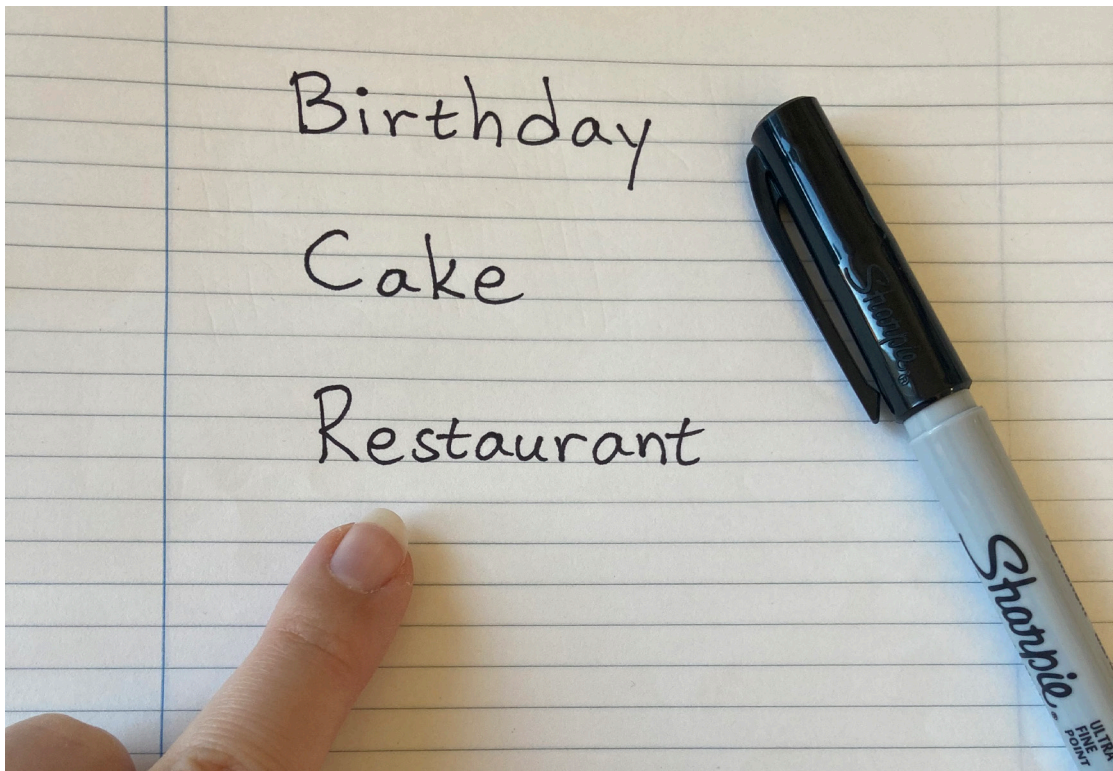 Birthday
Cake
Restaurant
Sharpie®
Sharpie.
ULTRA
FINE
POINT